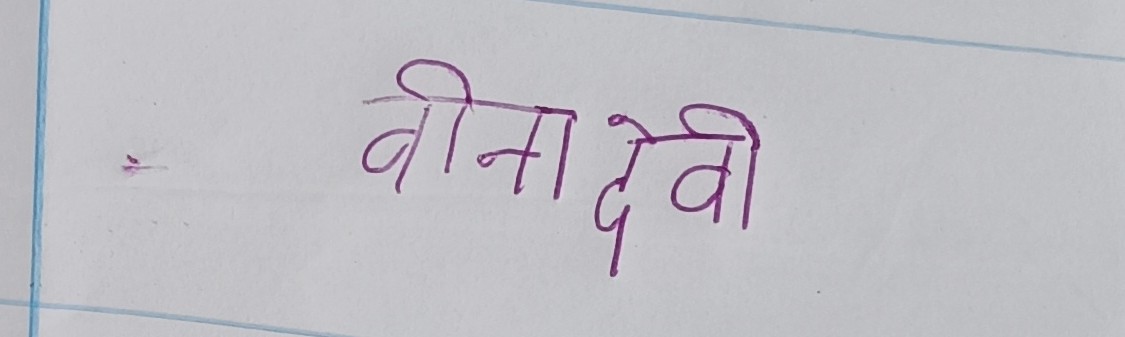 वीना देवी